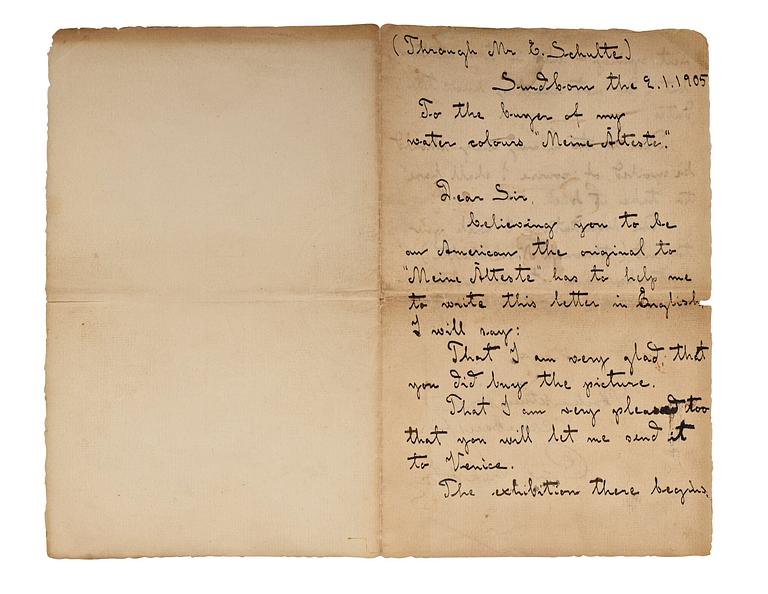 (Through Mr E. Schulte)
Sundborn the 2.1.1905
To the buyer of my
water colours "Meine Älteste."
Dear Sir,
believing you to be
an American, the original to
"Meine Älteste" has to help me
to write this letter in English.
I will say:
That I am very glad that
you did buy the picture.
That I am very pleased too
that you will let me send it
to Venice.
The exhibition there begins